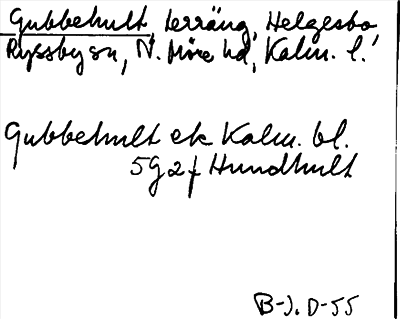 Gubbehult, terräng, Helgesbo,
Ryssby sn, N. Möre hd, Kalm. l.
Gubbehult ek Kalm. bl.
5g2f Hundhult
B-J. D-55